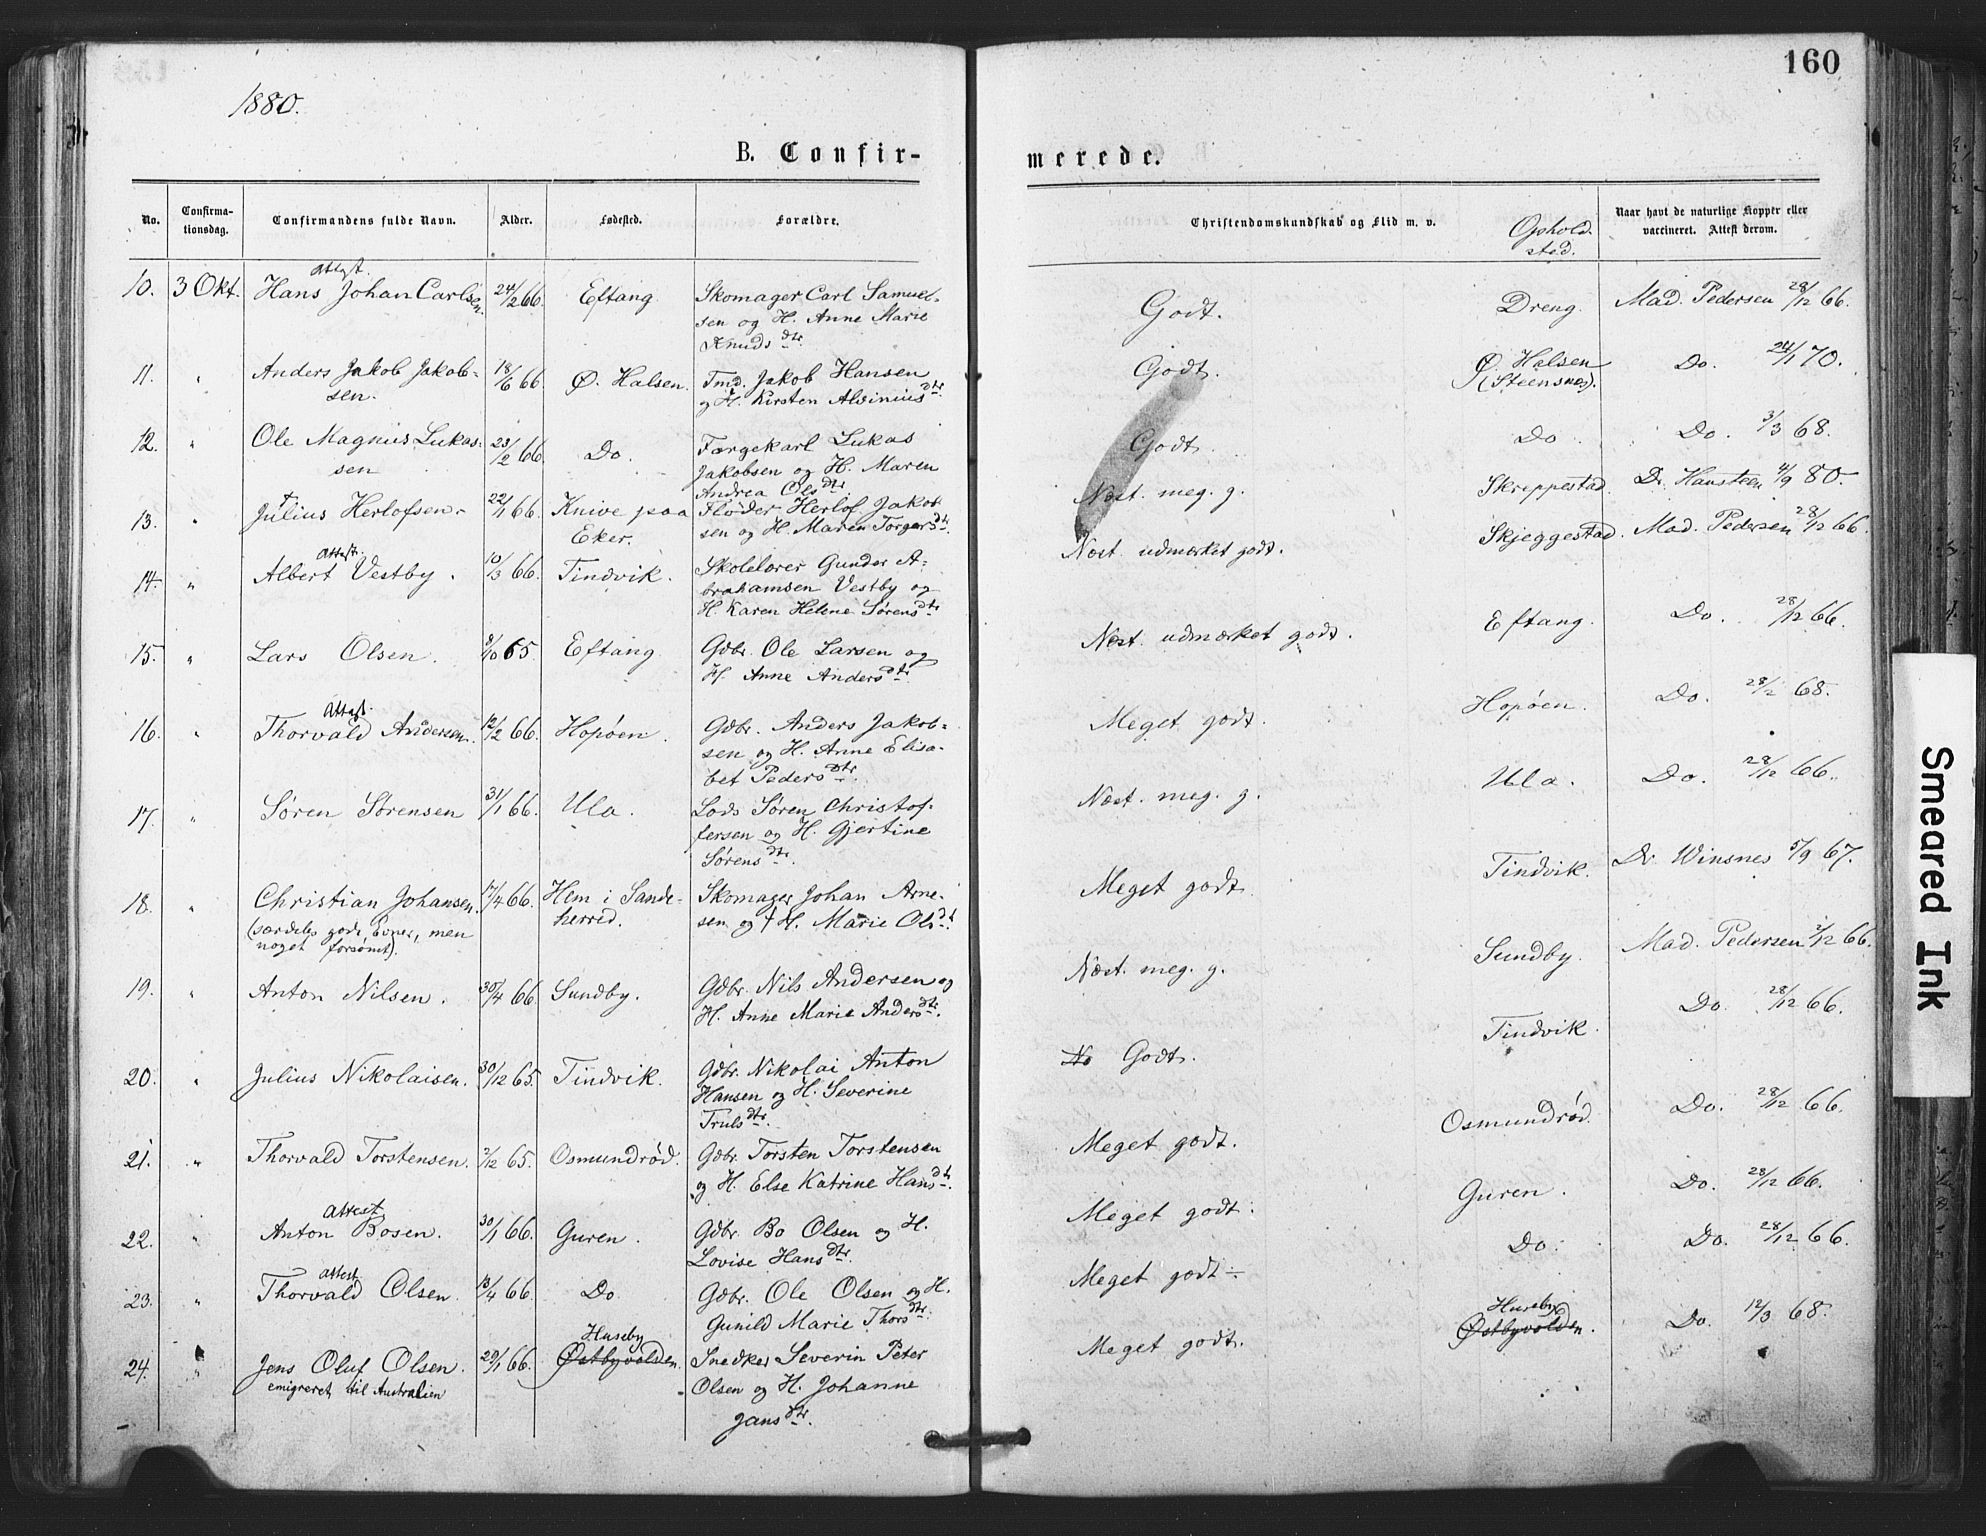 160
1880.
B. Confir-
merede.
No.
Confirma-
tionsdag.
Confirmandens fulde Navn.
Alder.
Fødested.
Forældre.
Christendomskundskab og Flid m. v.
Ophold
sted.
Naar havt de naturlige Kopper eller
vaccineret. Attest derom.
Attest.
10. 3 Okt. Hans Johan Carlsen. 24/2 66. Eftang. Skomager Carl Samuel-
sen og H. Anne Marie
Knudsdtr.
Godt. Dreng. Mad. Pedersen 28/12 66.
11. " Anders Jakob Jakob-
sen. 18/6 66. Ø. Halsen. Tmd. Jakob Hansen
og H. Kirsten Alvinius dtr.
Godt. Ø. Halsen
(Steensnes). Do. 24/1 70.
12. " Ole Magnus Lukas-
sen 23/2 66. Do. Færgekarl Lukas
Jakobsen og H. Maren
Andrea Olsdtr
Godt. Do. Do. 3/3 68.
13. " Julius Herlofsen. 22/1 66. Knive paa
Eker. Fløder Herlof Jakob
sen og H. Maren Torgersdtr.
Næst. meg. g. Skreppestad. Dr. Hansteen 4/9 80.
Attest.
14. " Albert Vestby. 10/3 66. Tindvik. Skolelærer Gunder A-
brahamsen Vestby og
H. Karen Helene Sørensdtr
Næst. udmærket godt. Skjeggestad. Mad. Pedersen 28/12 66.
15. " Lars Olsen. 8/10 65. Eftang. Gdbr. Ole Larsen og
H. Anne Andersdtr.
Næst. udmærket godt. Eftang. Do. 28/12 66.
Attest.
16. " Thorvald Andersen. 12/2 66. Hopøen. Gdbr. Anders Jakob-
sen og H. Anne Elisa-
bet Pedersdtr.
Meget godt. Hopøen. Do. 28/2 68.
17. " Søren Sørensen 31/1 66. Ula. Lods Søren Christof-
fersen og H. Gjertine
Sørensdtr.
Næst. meg. g. Ula. Do. 28/12 66.
18. " Christian Johansen. 17/4 66. Hem i Sande-
herred. Skomager Johan Arne-
sen og † H. Marie Olsdt.
(særdeles gode Evner, men
noget forsømt).
Meget godt. Tindvik. Dr. Winsnes 5/9 67.
19. " Anton Nilsen. 30/4 66. Sundby. Gdbr. Nils Andersen og
H. Anne Marie Andersdtr.
Næst. meg. g. Sundby. Mad. Pedersen 2/12 66.
20. " Julius Nikolaisen. 30/12 65. Tindvik. Gdbr. Nikolai Anton
Hansen og H. Severine
Trulsdtr.
Godt. Tindvik. Do. 28/12 66.
21. " Thorvald Torstensen. 2/12 65. Osmundrød. Gdbr. Torsten Torstensen
og H. Else Katrine Hansdt.
Meget godt. Osmundrød. Do. 28/12 66.
Attest
22. " Anton Bosen. 30/1 66. Guren. Gdbr. Bo Olsen og H.
Lovise Hansdtr.
Meget godt. Guren. Do. 28/12 66.
Attest.
23. " Thorvald Olsen. 13/4 66. Do. Gdbr. Ole Olsen og H.
Gunild Marie Thorsdtr.
Meget godt. Do. Do. 28/12 66.
24. " Jens Oluf Olsen. 29/1 66. Huseby
Østbyvolden. Snedker Severin Peter
Olsen og H. Johanne
Jansdtr.
emigreret til Australien
Meget godt. Huseby
Østbyvolden. Do. 12/3 68.
Smeared Ink